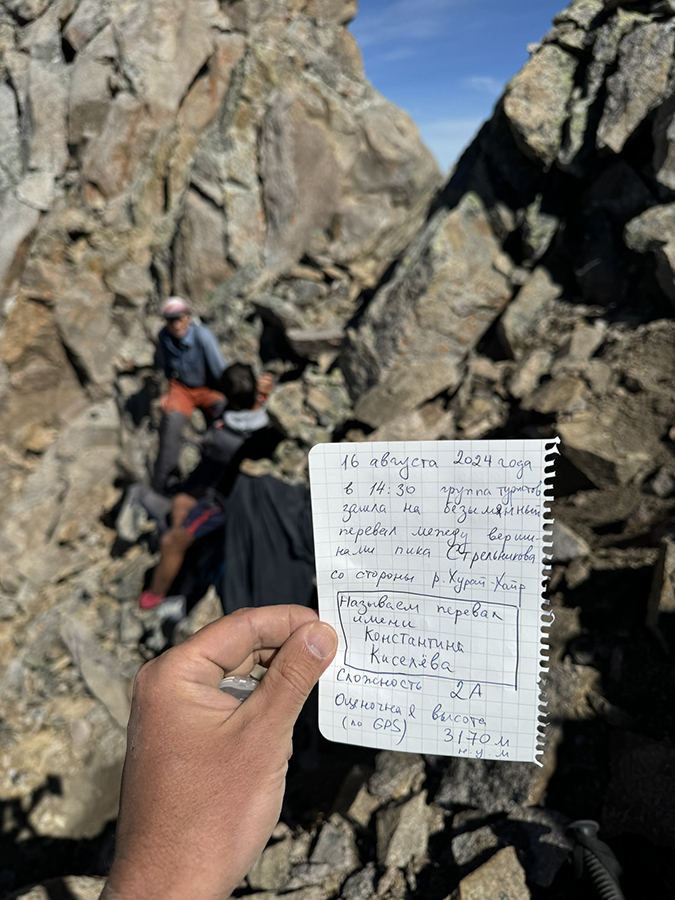 16 августа 2024 года
в 14:30 группа туристов
зашла на безымянный
перевал между верши-
нами пика Стрельникова
со стороны р. Хурай-Хайр
Называем перевал
имени
Константина
Киселёва
Сложность 2А
Оценочная высота
(по GPS) 3170 м
н.у.м